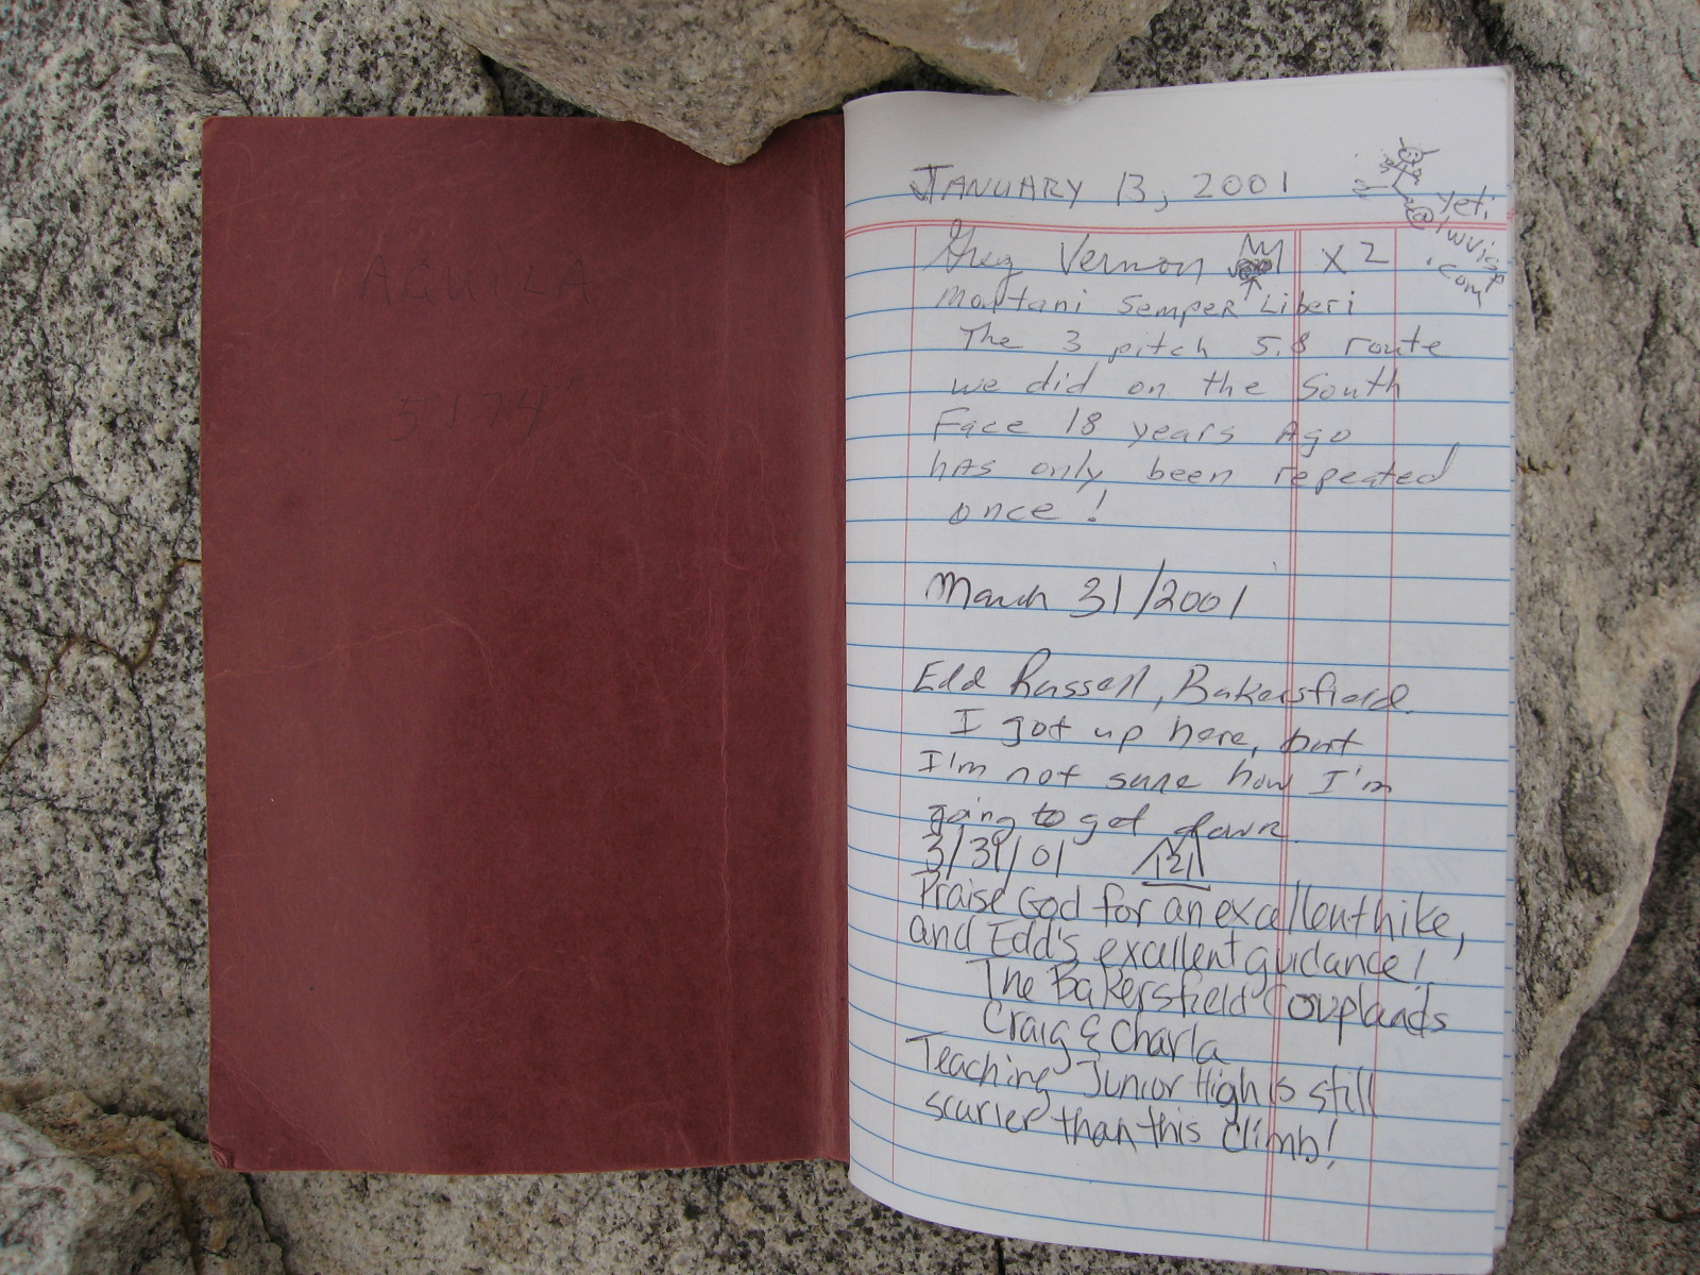 AQUILA
5174
JANUARY 13, 2001
Yeti
@
.com
Greg Vernon x2
Montani Semper Liberi
The 3 pitch 5.8 route
we did on the South
Face 18 years Ago
hAs only been repeated
once!
March 31/2001
Edd Russell, Bakersfield.
I got up here, but
I'm not sure how I'm
going to get down.
3/31/01 121
Praise God for an excellent hike,
and Edd's excellent guidance!
The Bakersfield Couplands
Craig & Charla
Teaching Junior High is still
scarier than this climb!